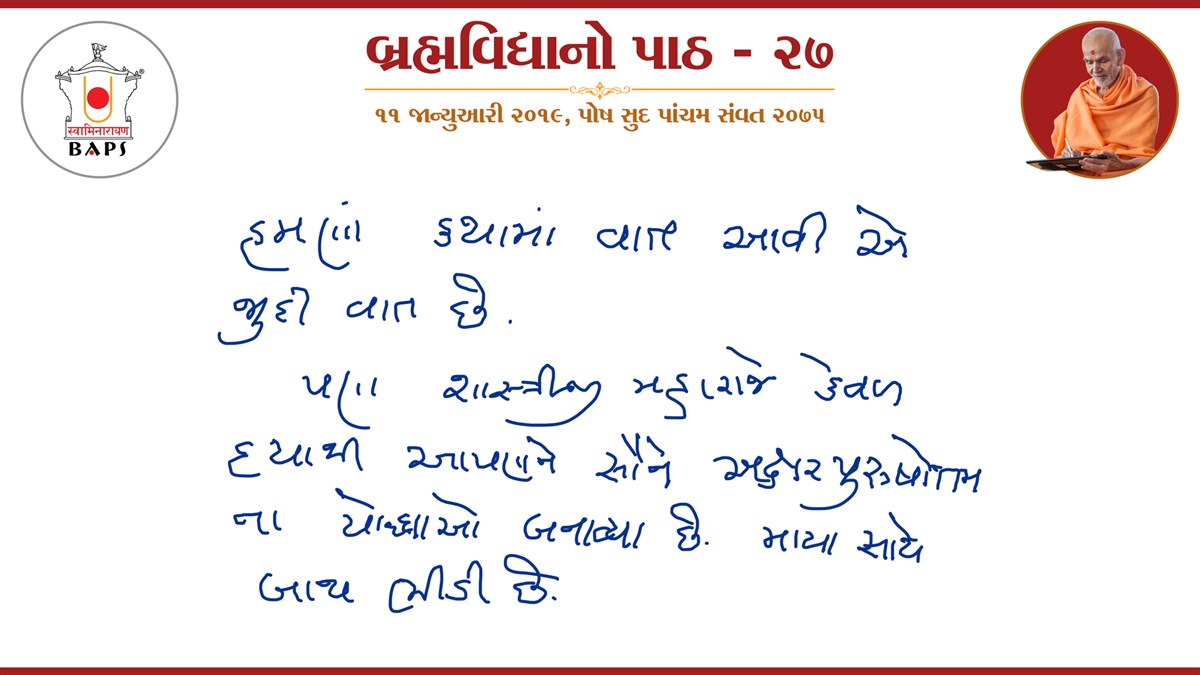 બ્રહ્મવિદ્યાનો પાઠ - ૨૭
૧૧ જાન્યુઆરી ૨૦૧૯, પોષ સુદ પાંચમ સંવત ૨૦૭૫
स्वामिनारायण
BAPS
હમણાં કથામાં વાત આવી એ
જુદી વાત છે.
પણ શાસ્ત્રીજી મહારાજે કેવળ
દયાથી આપણને સૌને અક્ષરપુરુષોત્તમ
ના યોદ્ધાઓ બનાવ્યા છે. માયા સાથે
બાથ ભીડી છે.